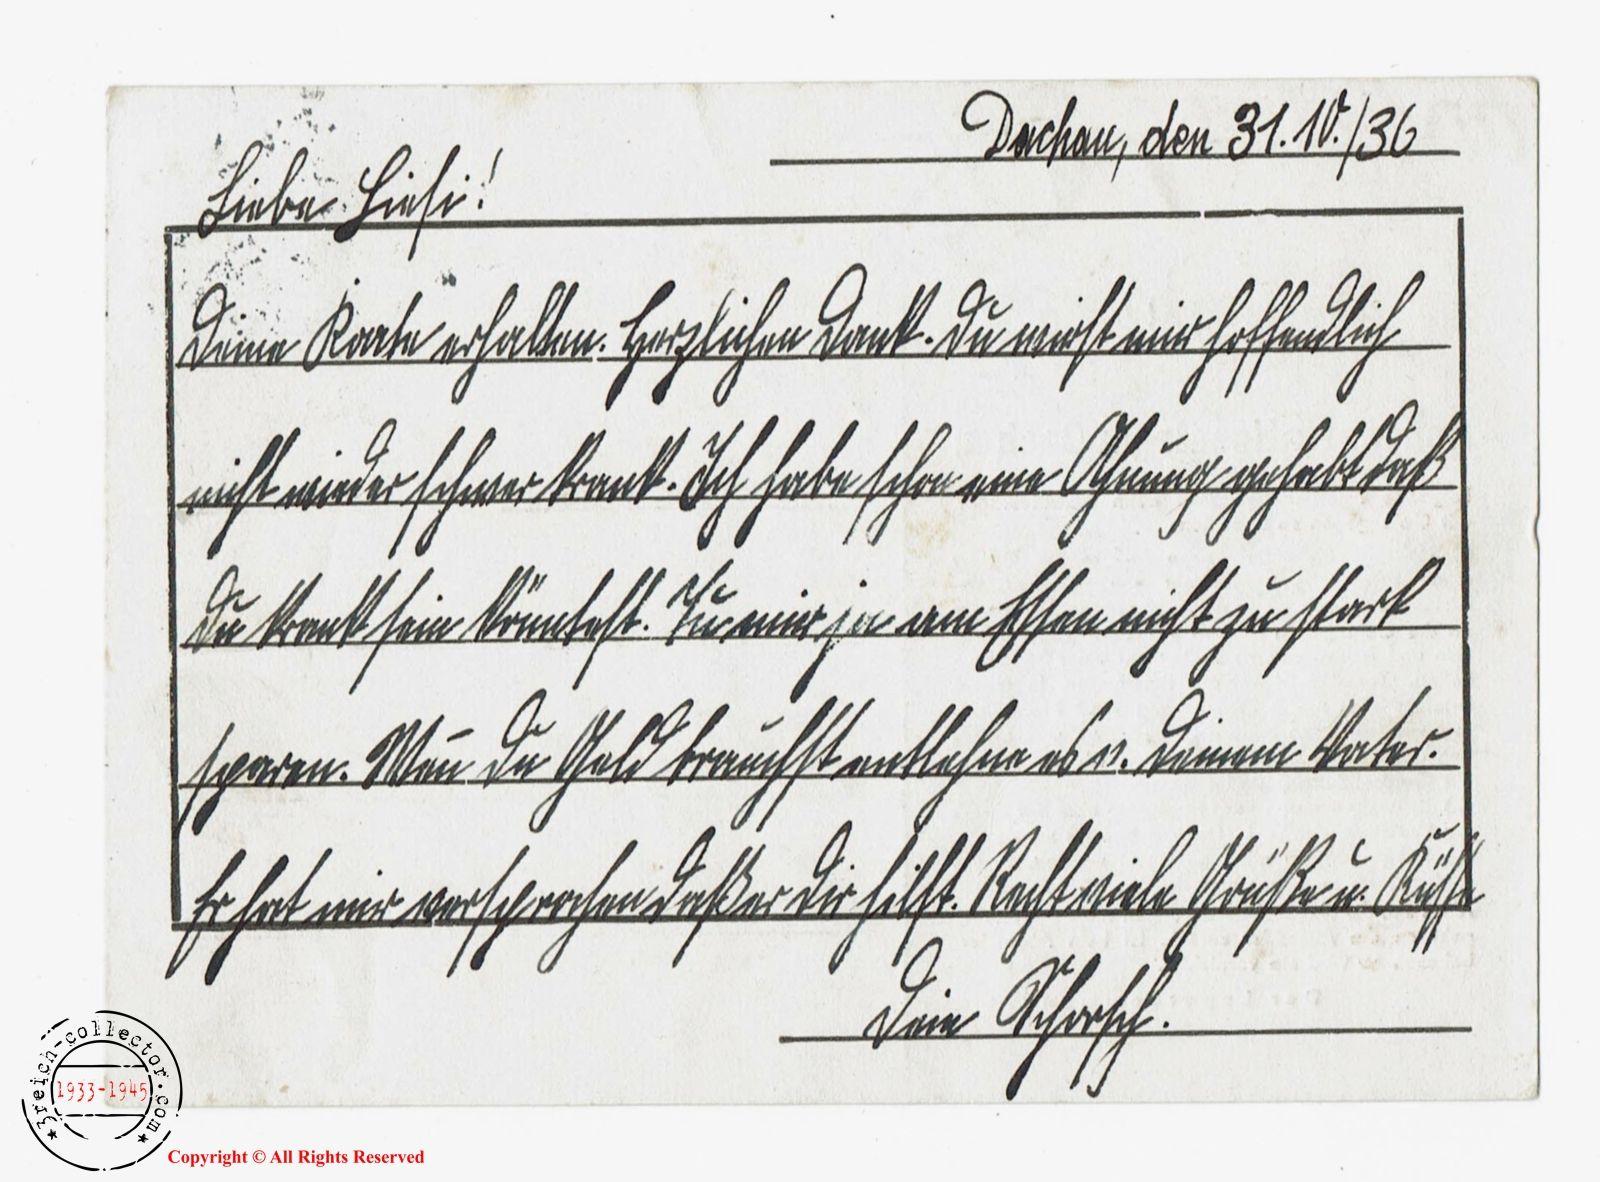 Dachau, den 31.10./36
Liebe Liesi!
Deine Karte erhalten. Herzlichen Dank. Du wirst mir hoffendlich
nicht wieder schwer krank. Ich habe schon eine Ahnung gehabt daß
Du krank sein könntest. Tu mir ja am Essen nicht zu stark
sparen. Wen̄ Du Geld brauchst entlehne es v. Deinem Vater.
Er hat mir versprochen daß er Dir hilft. Recht viele Grüße u. Küsse
Dein Schorsch.
3reich-collector.com
1933-1945
Copyright © All Rights Reserved